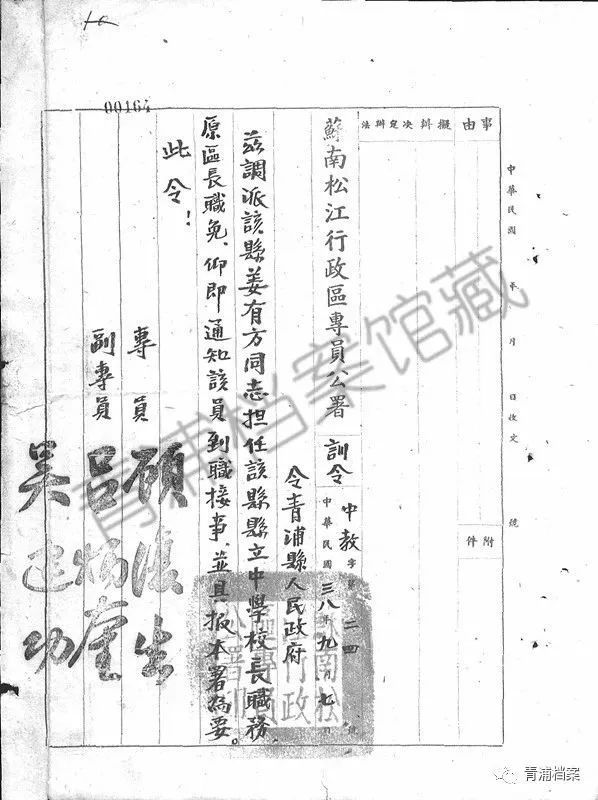 00164
事由
擬辦
決定辦法
附件
中華民國 年 月 日收文 號
蘇南松江行政區專員公署 訓令
中教字第二四號
中華民國三八年九月七日
令青浦縣人民政府
茲調派該縣姜有方同志担任該縣縣立中學校長職務、
原區長職免、仰即通知該員到職接事、並具报本署為要。
此令！
專員 顧復生
副專員
吳建功
青浦档案馆藏
青浦档案